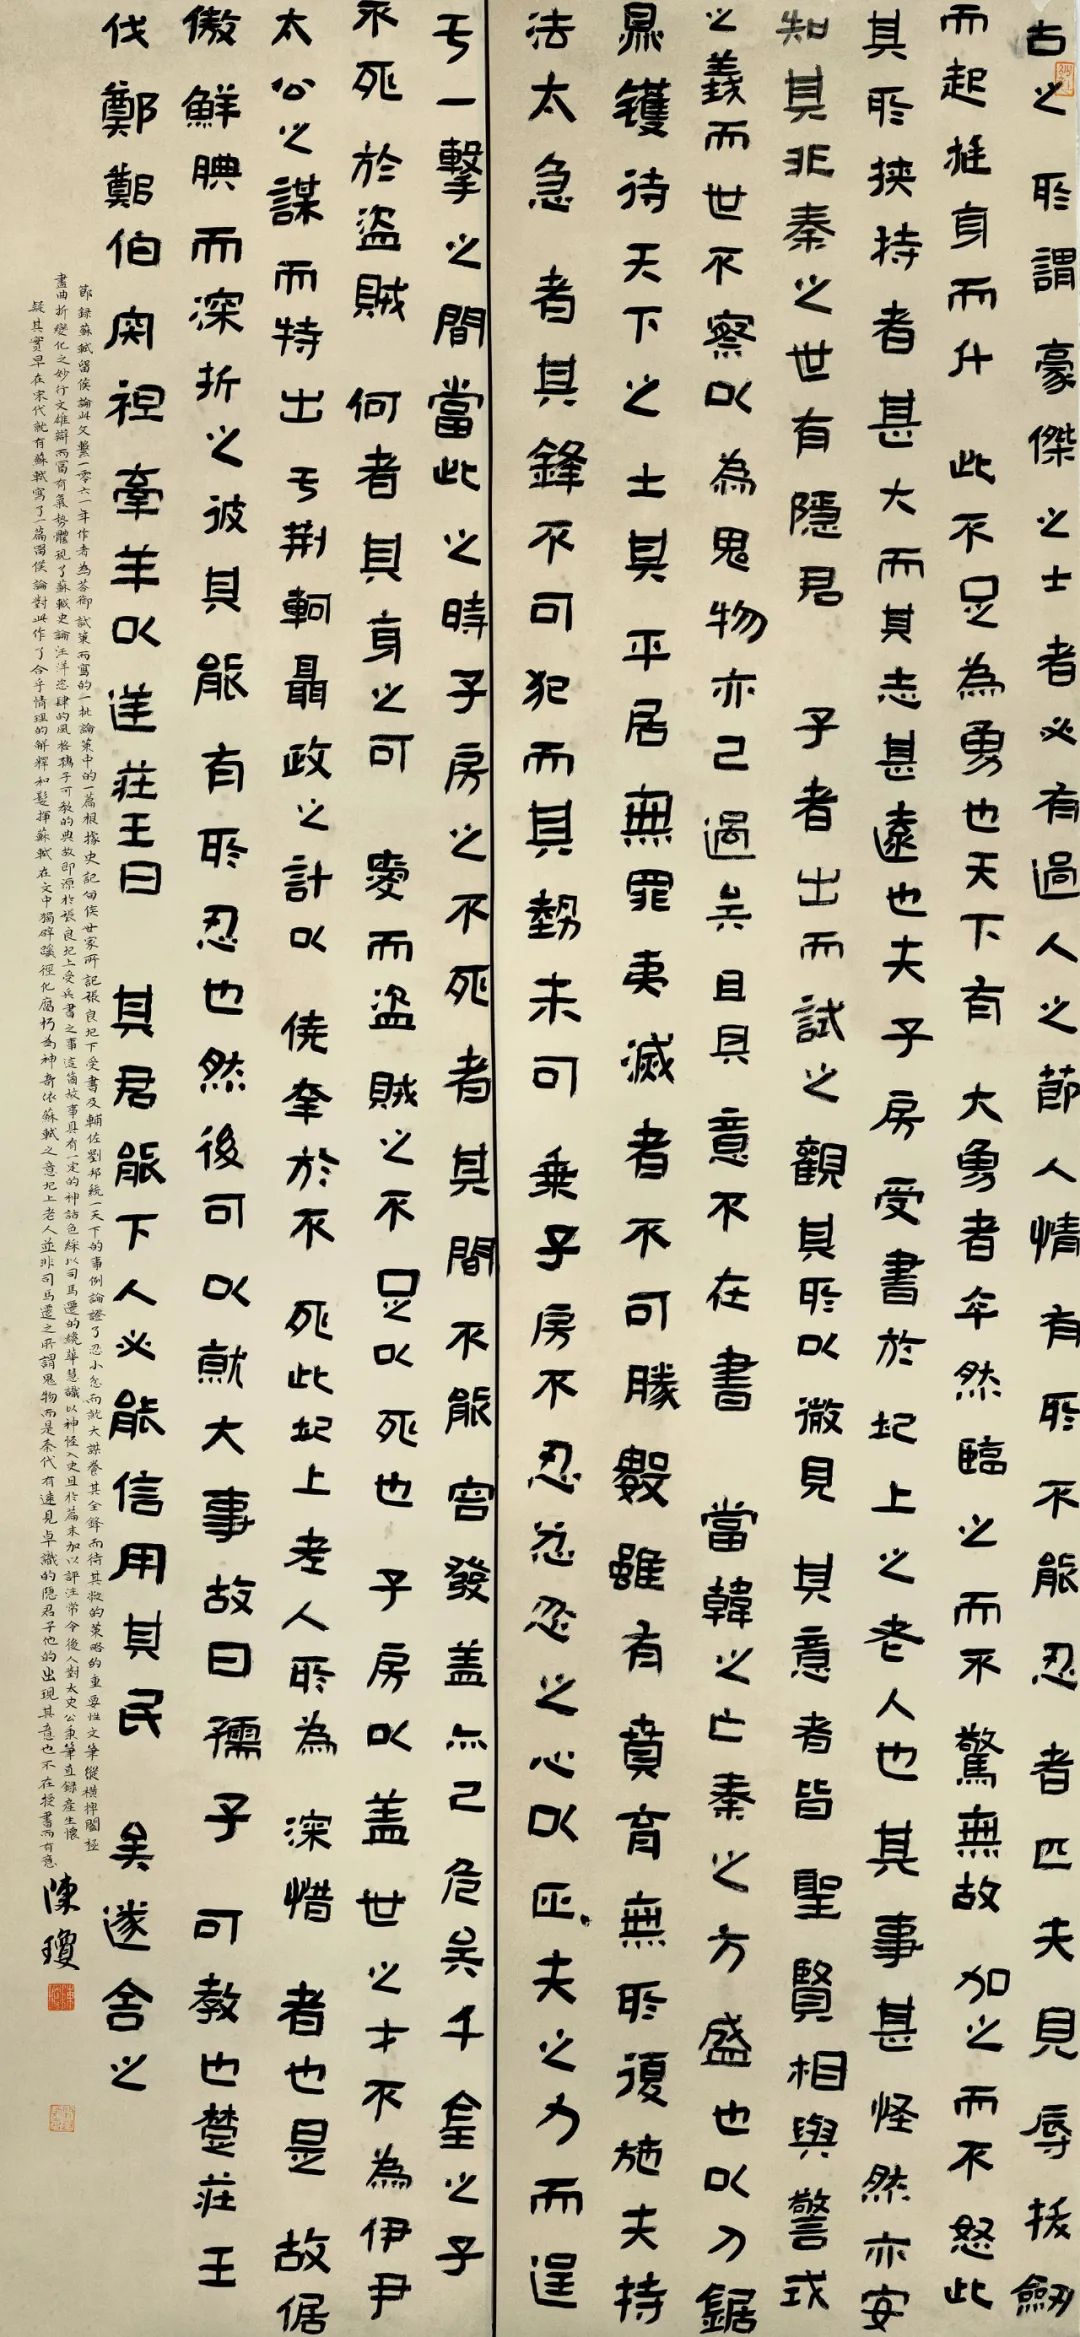 古之所謂豪傑之士者必有過人之節人情有所不能忍者匹夫見辱拔劒
而起挺身而鬥此不足為勇也天下有大勇者卒然臨之而不驚無故加之而不怒此
其所挾持者甚大而其志甚遠也夫子房受書於圯上之老人也其事甚怪然亦安
知其非秦之世有隱君子者出而試之觀其所以微見其意者皆聖賢相與警戒
之義而世不察以為鬼物亦已過矣且其意不在書當韓之亡秦之方盛也以刀鋸
鼎鑊待天下之士其平居無罪夷滅者不可勝數雖有賁育無所復施夫持
法太急者其鋒不可犯而其勢未可乘子房不忍忿忿之心以匹夫之力而逞
于一擊之間當此之時子房之不死者其間不能容發蓋亦已危矣千金之子
不死於盜賊何者其身之可愛而盜賊之不足以死也子房以蓋世之才不為伊尹
太公之謀而特出于荆軻聶政之計以僥幸於不死此圯上老人所為深惜者也是故倨
傲鮮腆而深折之彼其能有所忍也然後可以就大事故曰孺子可教也楚莊王
伐鄭鄭伯肉袒牽羊以逆莊王曰其君能下人必能信用其民矣遂舍之
節錄蘇軾留侯論此文繫一零六一年作者為答御試策而寫的一批論策中的一篇根據史記留侯世家所記張良圯下受書及輔佐劉邦統一天下的事例論證了忍小忿而就大謀養其全鋒而待其敝的策略的重要性文筆縱橫捭闔極
盡曲折變化之妙行文雄辯而富有氣勢體現了蘇軾史論汪洋恣肆的風格孺子可教的典故即源於張良圯上受兵書之事這個故事具有一定的神話色綵以司馬遷的華慧識以神怪入史且於篇末加以評注常令後人對太史公秉筆直錄產生懷
疑其實早在宋代就有蘇軾寫了一篇留侯論對此作了合乎情理的解釋和髮揮蘇軾在文中獨辟蹊徑化腐朽為神奇依蘇軾之意圯上老人並非司馬遷之所謂鬼物而是秦代有遠見卓識的隱君子他的出現其意也不在授書而有意
陳瓊